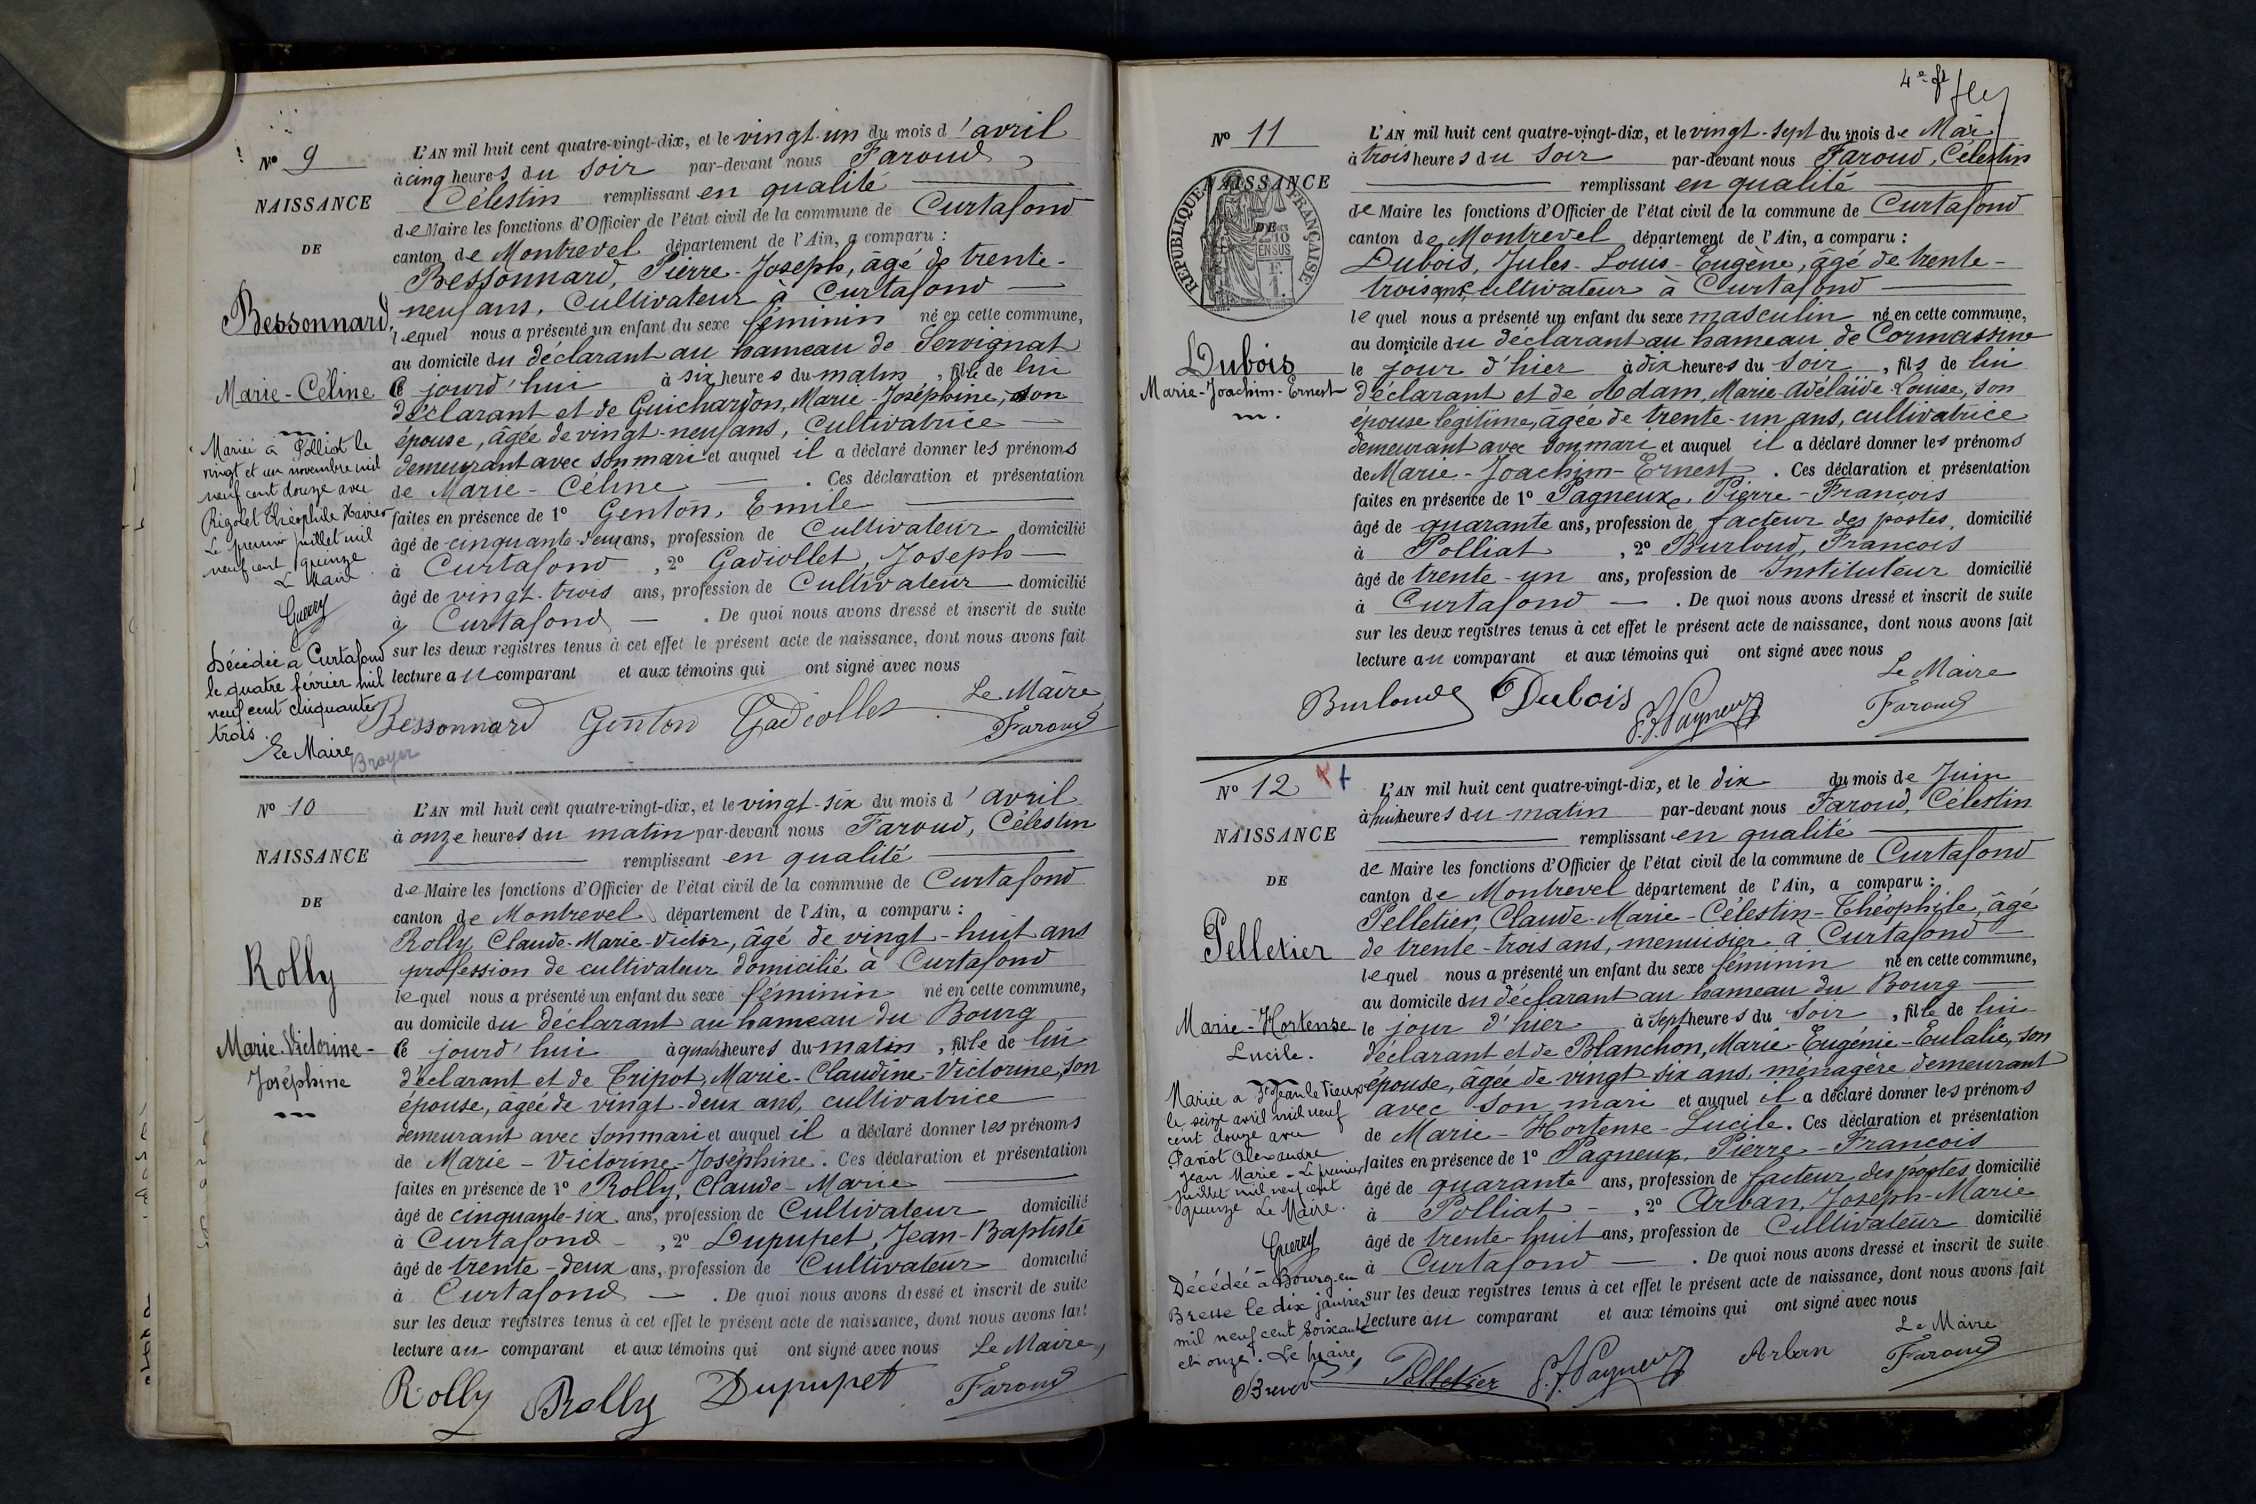 N° 9
NAISSANCE
DE
Bessonnard,
Marie-Céline
Mariée à Polliat le
vingt et un novembre mil
neuf cent douze avec
Rigollet Théophile Xavier
Le premier juillet mil
neuf cent quinze
Le Maire
Guerry
Décédée à Curtafond
le quatre février mil
neuf cent cinquante
trois.
Le Maire
Broyer
L'AN mil huit cent quatre-vingt-dix, et le vingt-un du mois d'avril
à cinq heures du soir par-devant nous Faroud
Célestin remplissant en qualité
de Maire les fonctions d'Officier de l'état civil de la commune de Curtafond
canton de Montrevel département de l'Ain, a comparu :
Bessonnard, Pierre-Joseph, âgé de trente-
neuf ans, Cultivateur à Curtafond
lequel nous a présenté un enfant du sexe féminin né en cette commune,
au domicile du déclarant au hameau de Servignat
ce jourd'hui à six heures du matin, fille de lui
déclarant et de Guichardon, Marie-Joséphine, son
épouse, âgée de vingt-neuf ans, Cultivatrice
demeurant avec son mari et auquel il a déclaré donner les prénoms
de Marie-Céline. Ces déclaration et présentation
faites en présence de 1° Genton, Emile
âgé de cinquante-deux ans, profession de Cultivateur domicilié
à Curtafond, 2° Gadiollet, Joseph
âgé de vingt-trois ans, profession de Cultivateur domicilié
à Curtafond. De quoi nous avons dressé et inscrit de suite
sur les deux registres tenus à cet effet le présent acte de naissance, dont nous avons fait
lecture au comparant et aux témoins qui ont signé avec nous
Le Maire
Bessonnard Genton Gadiollet Faroud
N° 10
NAISSANCE
DE
Rolly
Marie-Victorine-
Joséphine
L'AN mil huit cent quatre-vingt-dix, et le vingt-six du mois d'avril
à onze heures du matin par-devant nous Faroud, Célestin
remplissant en qualité
de Maire les fonctions d'Officier de l'état civil de la commune de Curtafond
canton de Montrevel département de l'Ain, a comparu :
Rolly, Claude-Marie-Victor, âgé de vingt-huit ans
profession de cultivateur domicilié à Curtafond
lequel nous a présenté un enfant du sexe féminin né en cette commune,
au domicile du déclarant au hameau du Bourg
ce jourd'hui à quatre heures du matin, fille de lui
déclarant et de Tripot, Marie-Claudine-Victorine, son
épouse, âgée de vingt-deux ans, cultivatrice
demeurant avec son mari et auquel il a déclaré donner les prénoms
de Marie-Victorine-Joséphine. Ces déclaration et présentation
faites en présence de 1° Rolly, Claude-Marie
âgé de cinquante-six ans, profession de Cultivateur domicilié
à Curtafond, 2° Dupupet, Jean-Baptiste
âgé de trente-deux ans, profession de Cultivateur domicilié
à Curtafond. De quoi nous avons dressé et inscrit de suite
sur les deux registres tenus à cet effet le présent acte de naissance, dont nous avons fait
lecture au comparant et aux témoins qui ont signé avec nous Le Maire,
Rolly Rolly Dupupet Faroud
4e ft
N° 11
NAISSANCE
DE
RÉPUBLIQUE FRANÇAISE
2/10 EN SUS
Dubois
Marie-Joachim-Ernest
L'AN mil huit cent quatre-vingt-dix, et le vingt-sept du mois de Mai
à trois heures du soir par-devant nous Faroud, Célestin
remplissant en qualité
de Maire les fonctions d'Officier de l'état civil de la commune de Curtafond
canton de Montrevel département de l'Ain, a comparu :
Dubois, Jules-Louis-Eugène, âgé de trente-
trois ans, cultivateur à Curtafond
lequel nous a présenté un enfant du sexe masculin né en cette commune,
au domicile du déclarant au hameau de Cormassine
le jour d'hier à dix heures du soir, fils de lui
déclarant et de Adam, Marie-Adélaïde-Louise, son
épouse légitime, âgée de trente-un ans, cultivatrice
demeurant avec son mari et auquel il a déclaré donner les prénoms
de Marie-Joachim-Ernest. Ces déclaration et présentation
faites en présence de 1° Pagneux, Pierre-François
âgé de quarante ans, profession de facteur des postes, domicilié
à Polliat, 2° Burloud, François
âgé de trente-un ans, profession de Instituteur domicilié
à Curtafond. De quoi nous avons dressé et inscrit de suite
sur les deux registres tenus à cet effet le présent acte de naissance, dont nous avons fait
lecture au comparant et aux témoins qui ont signé avec nous
Le Maire
Burloud Dubois P.F. Pagneux Faroud
N° 12
NAISSANCE
DE
Pelletier
Marie-Hortense
Lucile.
Mariée à St Jean le Vieux
le seize avril mil neuf
cent douze avec
Paviot Alexandre
Jean Marie - Le premier
juillet mil neuf cent
quinze Le Maire.
Guerry
Décédée à Bourg-en
Bresse le dix janvier
mil neuf cent soixante
et onze. Le Maire
L'AN mil huit cent quatre-vingt-dix, et le dix du mois de Juin
à huit heures du matin par-devant nous Faroud, Célestin
remplissant en qualité
de Maire les fonctions d'Officier de l'état civil de la commune de Curtafond
canton de Montrevel département de l'Ain, a comparu :
Pelletier, Claude-Marie-Célestin-Théophile, âgé
de trente-trois ans, menuisier à Curtafond
lequel nous a présenté un enfant du sexe féminin né en cette commune,
au domicile du déclarant au hameau du Bourg
le jour d'hier à sept heures du soir, fille de lui
déclarant et de Blanchon, Marie-Eugénie-Eulalie, son
épouse, âgée de vingt six ans, ménagère demeurant
avec son mari et auquel il a déclaré donner les prénoms
de Marie-Hortense-Lucile. Ces déclaration et présentation
faites en présence de 1° Pagneux, Pierre-François
âgé de quarante ans, profession de facteur des postes domicilié
à Polliat, 2° Arban, Joseph-Marie
âgé de trente-huit ans, profession de Cultivateur domicilié
à Curtafond. De quoi nous avons dressé et inscrit de suite
sur les deux registres tenus à cet effet le présent acte de naissance, dont nous avons fait
lecture au comparant et aux témoins qui ont signé avec nous
Le Maire
Pelletier P.F. Pagneux Arban Faroud